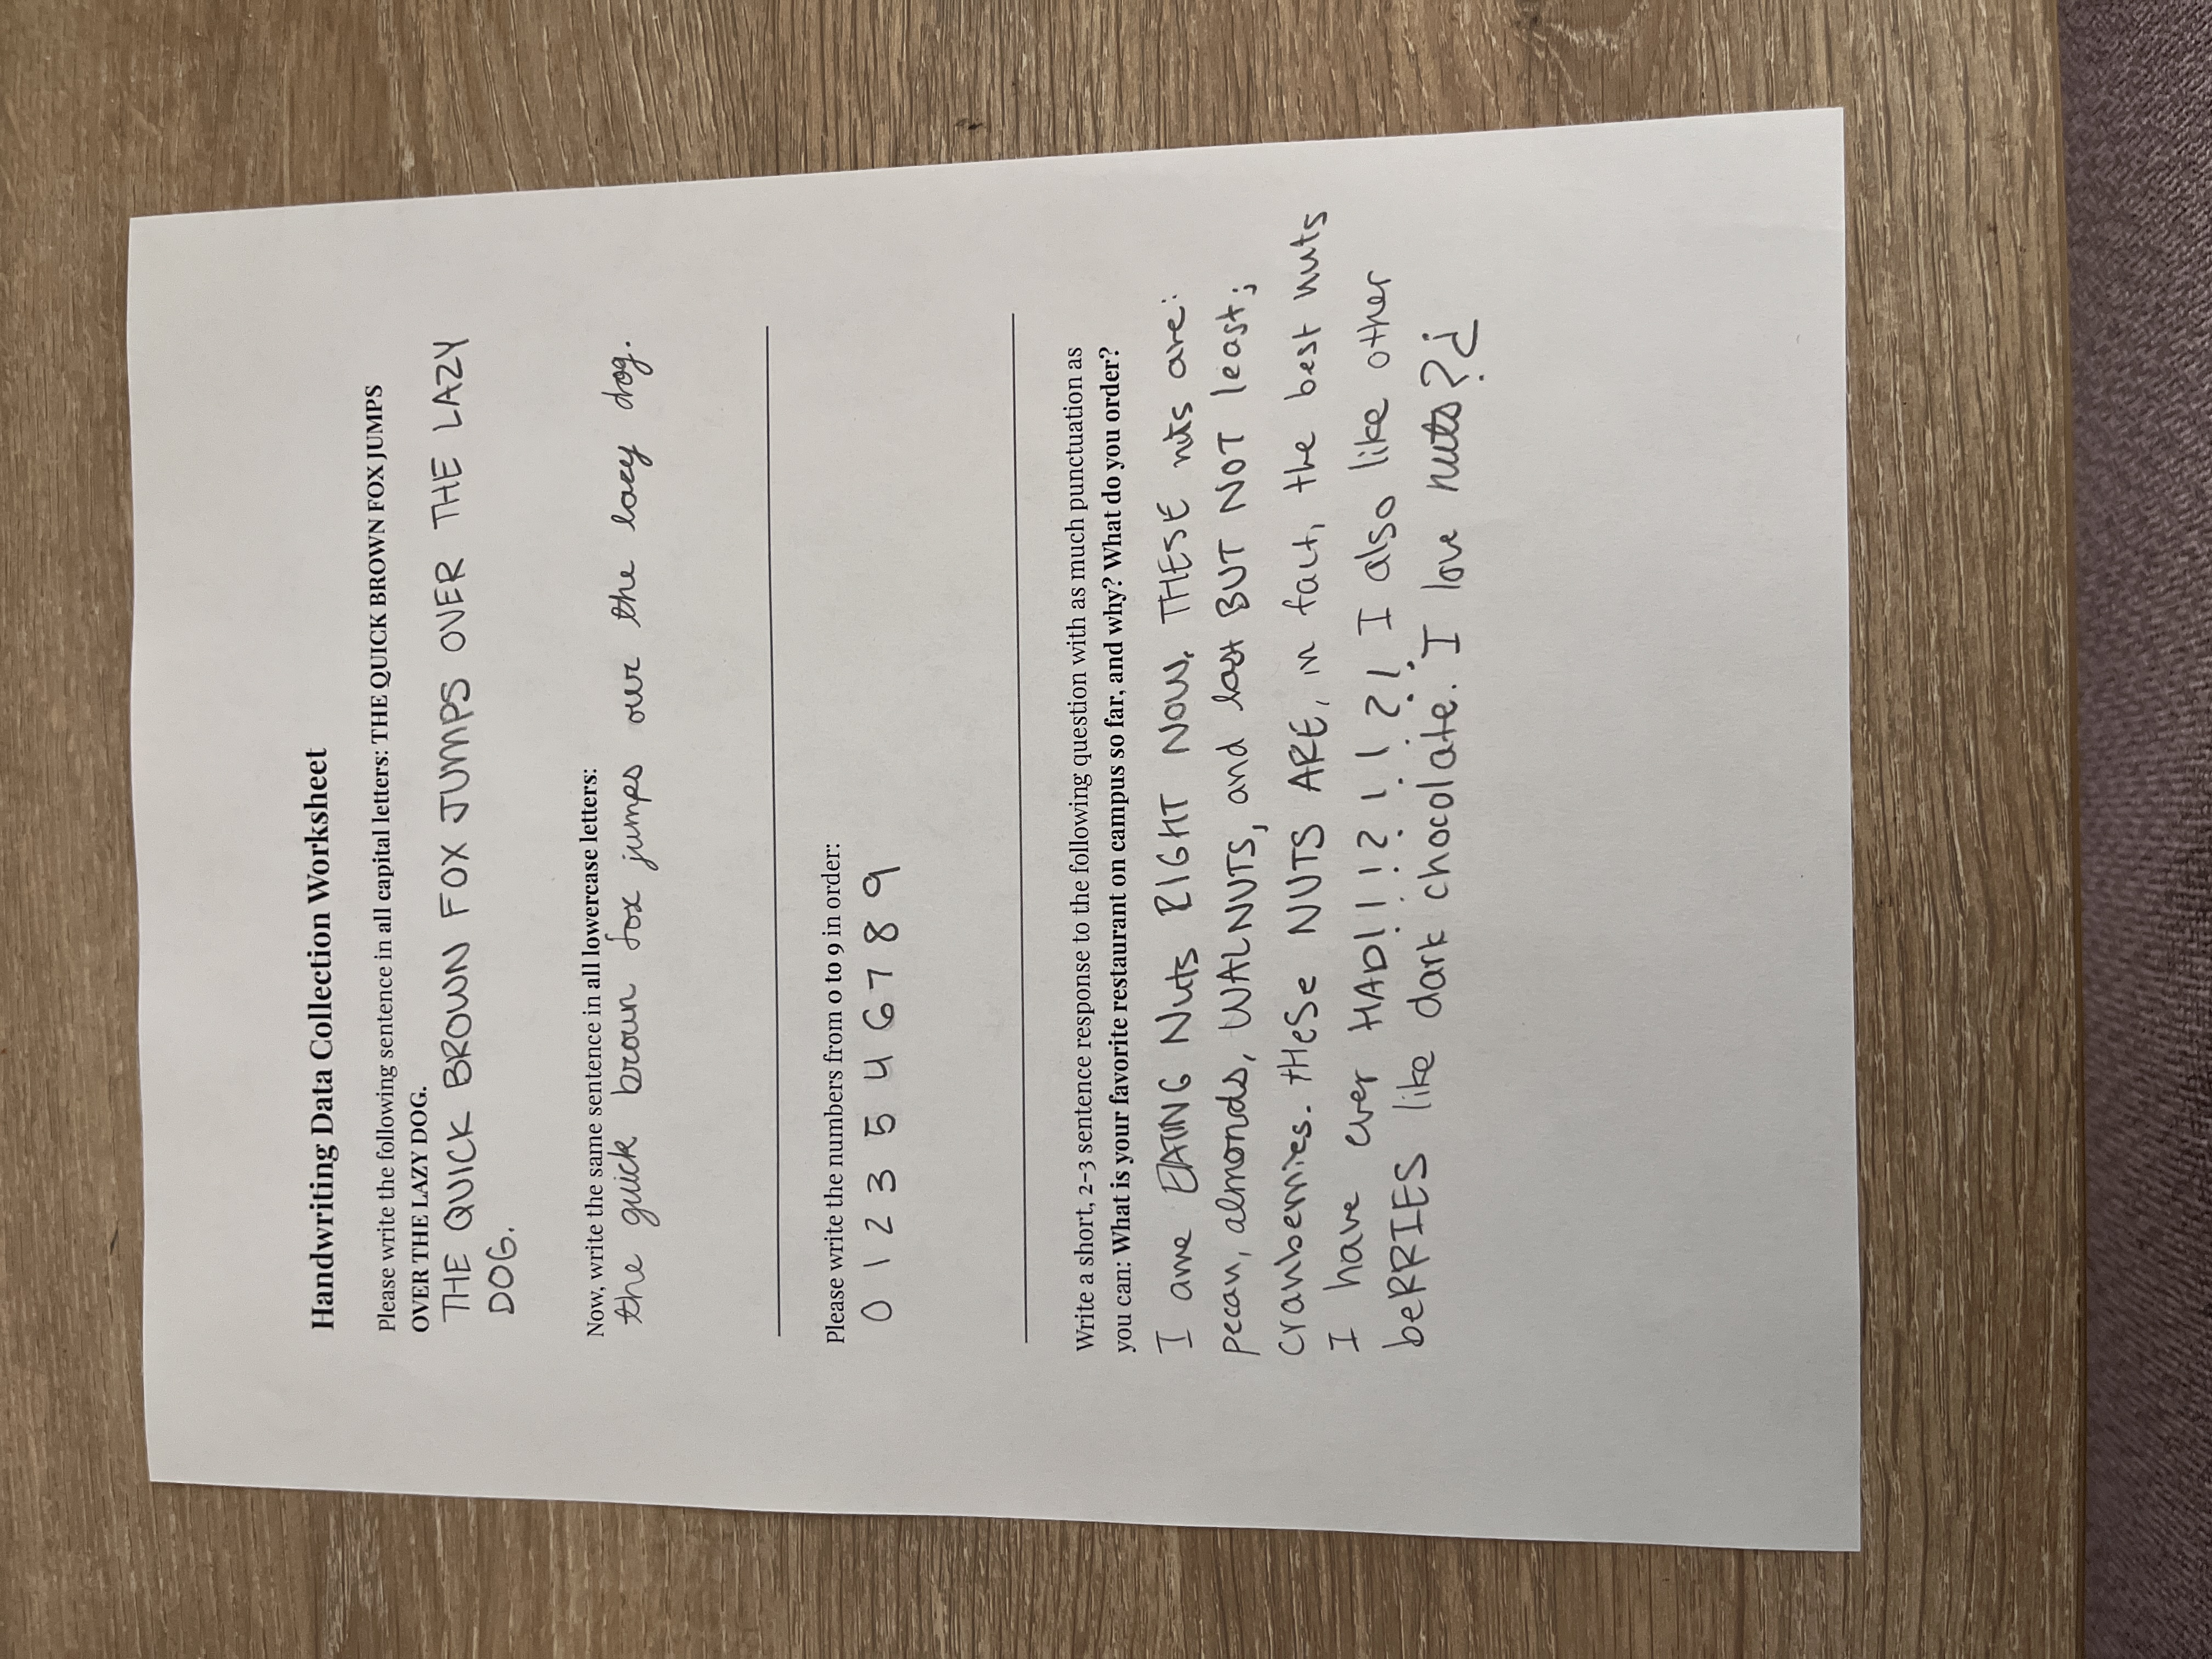 Handwriting Data Collection Worksheet
Please write the following sentence in all capital letters: THE QUICK BROWN FOX JUMPS
OVER THE LAZY DOG.
THE QUICK BROWN FOX JUMPS OVER THE LAZY
DOG.
Now, write the same sentence in all lowercase letters:
the quick brown fox jumps over the lazy dog.
Please write the numbers from 0 to 9 in order:
0 1 2 3 5 4 6 7 8 9
Write a short, 2-3 sentence response to the following question with as much punctuation as
you can: What is your favorite restaurant on campus so far, and why? What do you order?
I ame EATING Nuts RIGHT NOW. THESE nuts are:
pecan, almonds, WALNUTS, and last BUT NOT least;
cranberries. tHeSe NUTS ARE, in fact, the best nuts
I have ever HAD!!!?!!?! I also like other
beRRIES like dark chocolate. I love nuts?¿